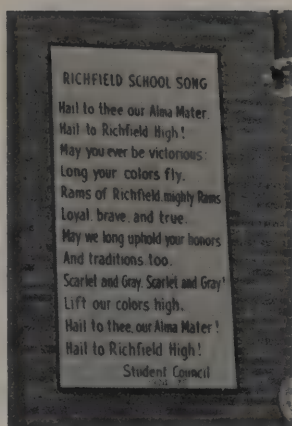 RICHFIELD SCHOOL SONG
Hail to thee our Alma Mater.
Hail to Richfield High!
May you ever be victorious:
Long your colors fly.
Rams of Richfield, mighty Rams
Loyal, brave, and true.
May we long uphold your honors
And traditions too.
Scarlet and Gray, Scarlet and Gray!
Lift our colors high.
Hail to thee, our Alma Mater!
Hail to Richfield High!
Student Council